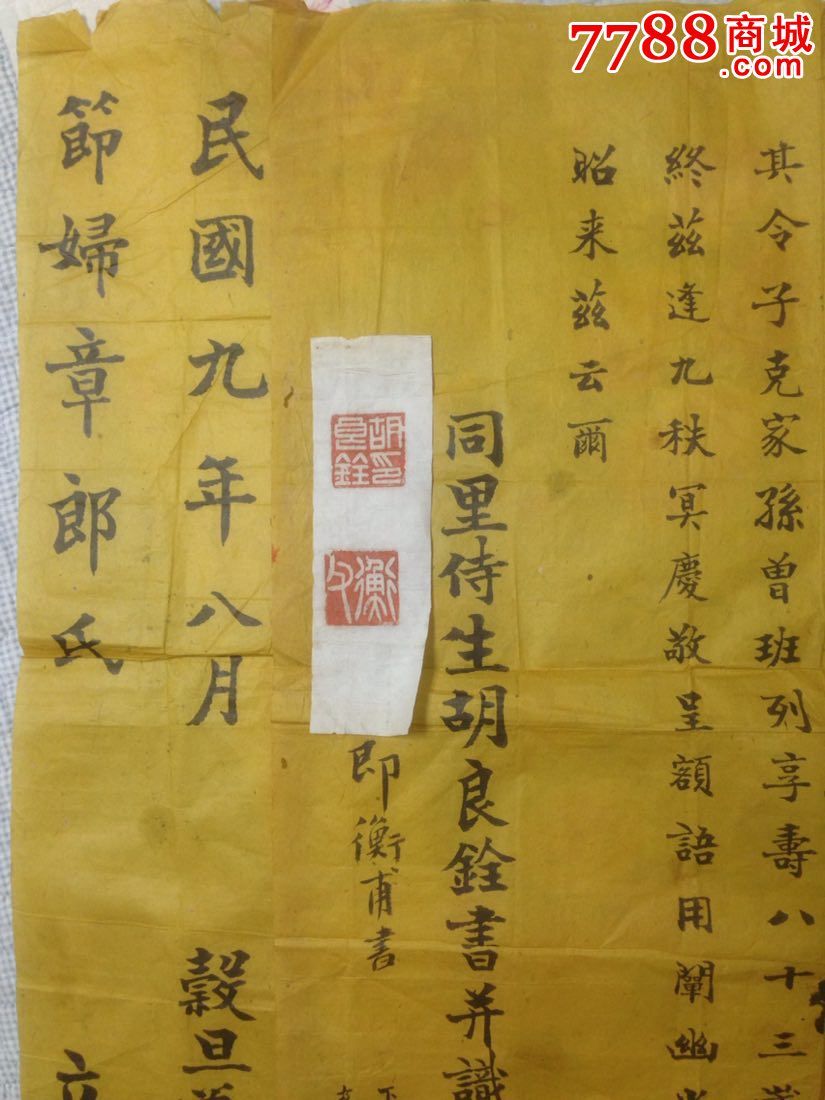 7788商城
.com
其令子克家孫曾班列享壽八十三
終茲逢九秩冥慶敬呈額語用闡幽
昭来茲云爾
同里侍生胡良銓書并識
即衡甫書
胡良銓印
衡父
民國九年八月 穀旦
節婦章郎氏 立